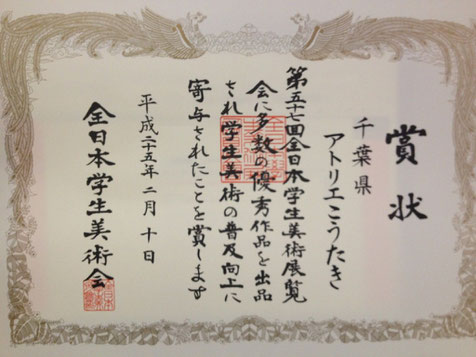 賞状
千葉県
アトリエこうたき
第五十七回全日本学生美術展覧
会に多数の優秀作品を出品
され学生美術の普及向上に
寄与されたことを賞します
平成二十五年二月十日
全日本学生美術会